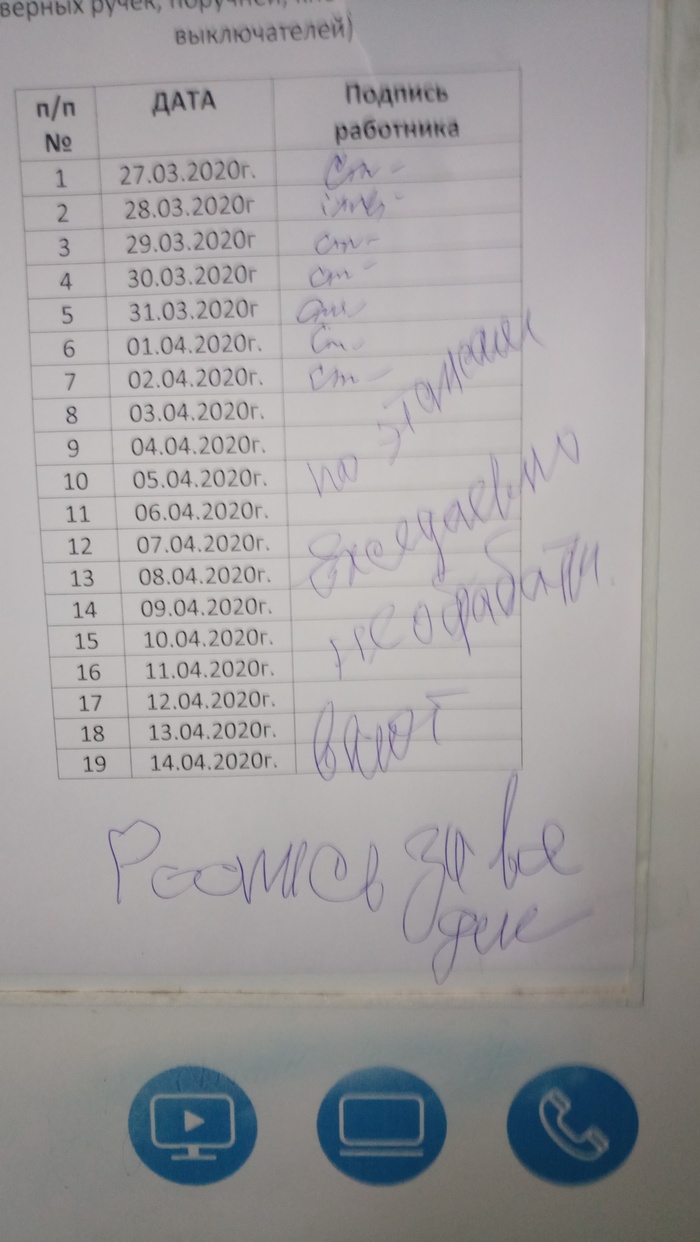 верных ручек, поручней,
выключателей)
п/п № ДАТА Подпись работника
1 27.03.2020г.
2 28.03.2020г
3 29.03.2020г
4 30.03.2020г
5 31.03.2020г
6 01.04.2020г.
7 02.04.2020г.
8 03.04.2020г.
9 04.04.2020г.
10 05.04.2020г.
11 06.04.2020г.
12 07.04.2020г.
13 08.04.2020г.
14 09.04.2020г.
15 10.04.2020г.
16 11.04.2020г.
17 12.04.2020г.
18 13.04.2020г.
19 14.04.2020г.
по этажам
Ежедневно
не обрабаты
вают
Роспись за все
дне